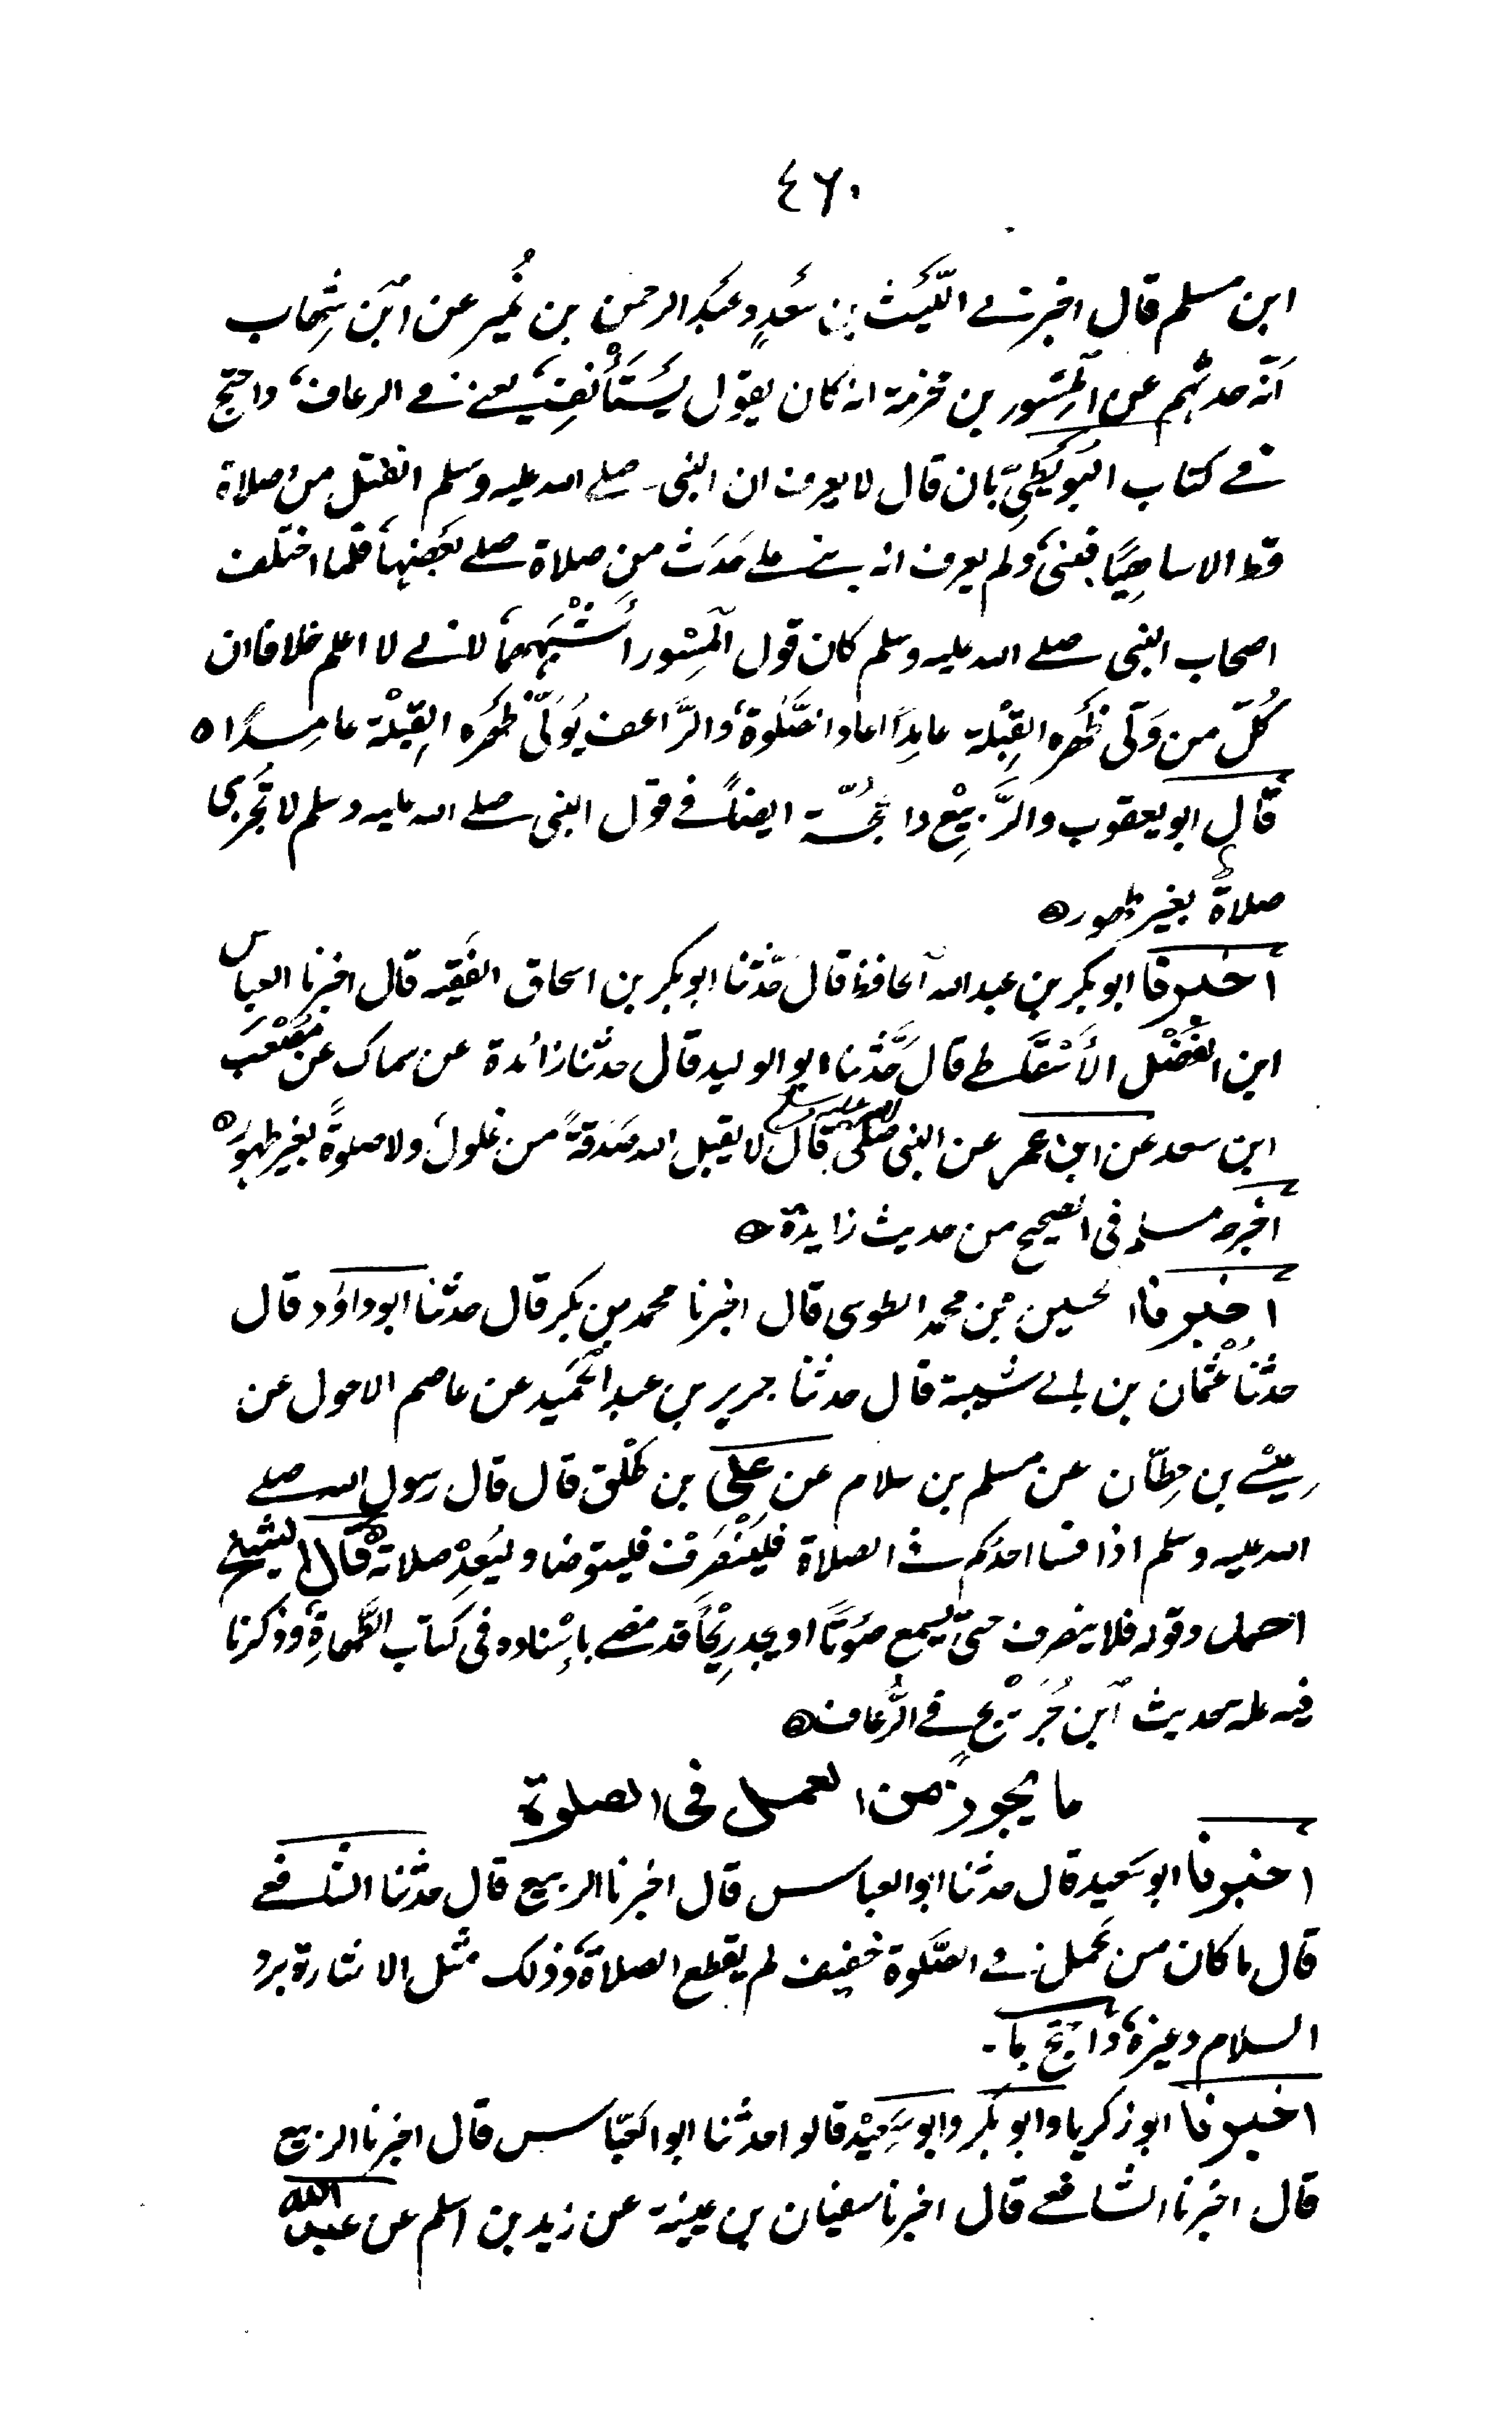 ٤٦٠
ابن مسلم قال اخبرني اللّيَث بن سَعدٍ وعَبد الرحمن بن نُمير عن ابن شِهاب
انّه حدثهم عن المِسْور بن مخرمة انه كان يقول يَسْتَأْنِفْ، يعني في الرعاف، واحتج
في كتاب البُوَيطيّ بان قال لا يعرف ان النبي صلى الله عليه وسلم انفتل من صلاة
قط الا ساهِيًا فبنى، ولم يعرف انه بنى على حَدَث من صلاة صلى بَعضها، فلما اختلف
اصحاب النبي صلى الله عليه وسلم كان قول المِسْور أشْبَههما، لاني لا اعلم خلافا ان
كُلّ من وَلّى ظَهره القِبْلة عامِدًا اعاد الصَّلوة، والرَّاعف يُوَلّي ظهْره القِبْلة عامِدًا ه
قال ابو يعقوب والرَّبِيْع والحُجّة ايضًا في قول النبي صلى الله عليه وسلم لا تُجْزى
صلاةٌ بغير طهور ه
اخبرنا ابو بكر بن عبد الله الحافظ قال حَدّثنا ابو بكر بن اسحاق الفَقِيه قال اخبرنا العباس
ابن الفَضْل الأَسْفَاطي قال حَدَّثنا ابو الوليد قال حدثنا زائدة عن سماك عن مُصْعَب
ابن سعد عن ابن عمر عن النبي صلى الله عليه وسلم قال لا يقبل الله صَدَقةً من غلول، ولا صلوةً بغير طهور ه
اخرجه مسلم في الصحيح من حديث زايدة ه
اخبرنا الحسين بن محمد الطوسي قال اخبرنا محمد بن بكر قال حدثنا ابو داؤد قال
حدثنا عُثْمان بن ابي شيبة قال حدثنا جرير بن عبد الحَمِيد عن عاصم الاحول عن
عِيْسى بن حِطّان عن مسلم بن سلام عن علي بن طَلْق قال قال رسول الله صلى
الله عليه وسلم اذا فسا احدكم في الصلاة فليَنْصَرفْ فليتوضا وليُعِدْ صلاته ه قال الشيخ
احمد وقوله فلا ينصرف حتى يسمع صَوْتًا او يجد رِيْحًا قد مضى بإسْناده في كتاب الطَّهارةِ، وذكرنا
فيه علة حديث ابن جُرَيْجٍ في الرُّعاف ه
ما يجوز من العمل في الصلوة
اخبرنا ابو سَعيد قال حدثنا ابو العباس قال اخبرنا الربيع قال حدثنا الشافعي
قال ما كان من عَمل في الصَّلوة خفيف لم يقطع الصلاة، وذلك مثل الاشارة برد
السلام وغيره، واحتج بما -
اخبرنا ابو زكريا وابو بكر وابو سَعِيْد قالوا حدثنا ابو العَبّاس قال اخبرنا الربيع
قال اخبرنا الشافعي قال اخبرنا سفيان بن عيينة عن زيد بن اسلم عن عبد الله